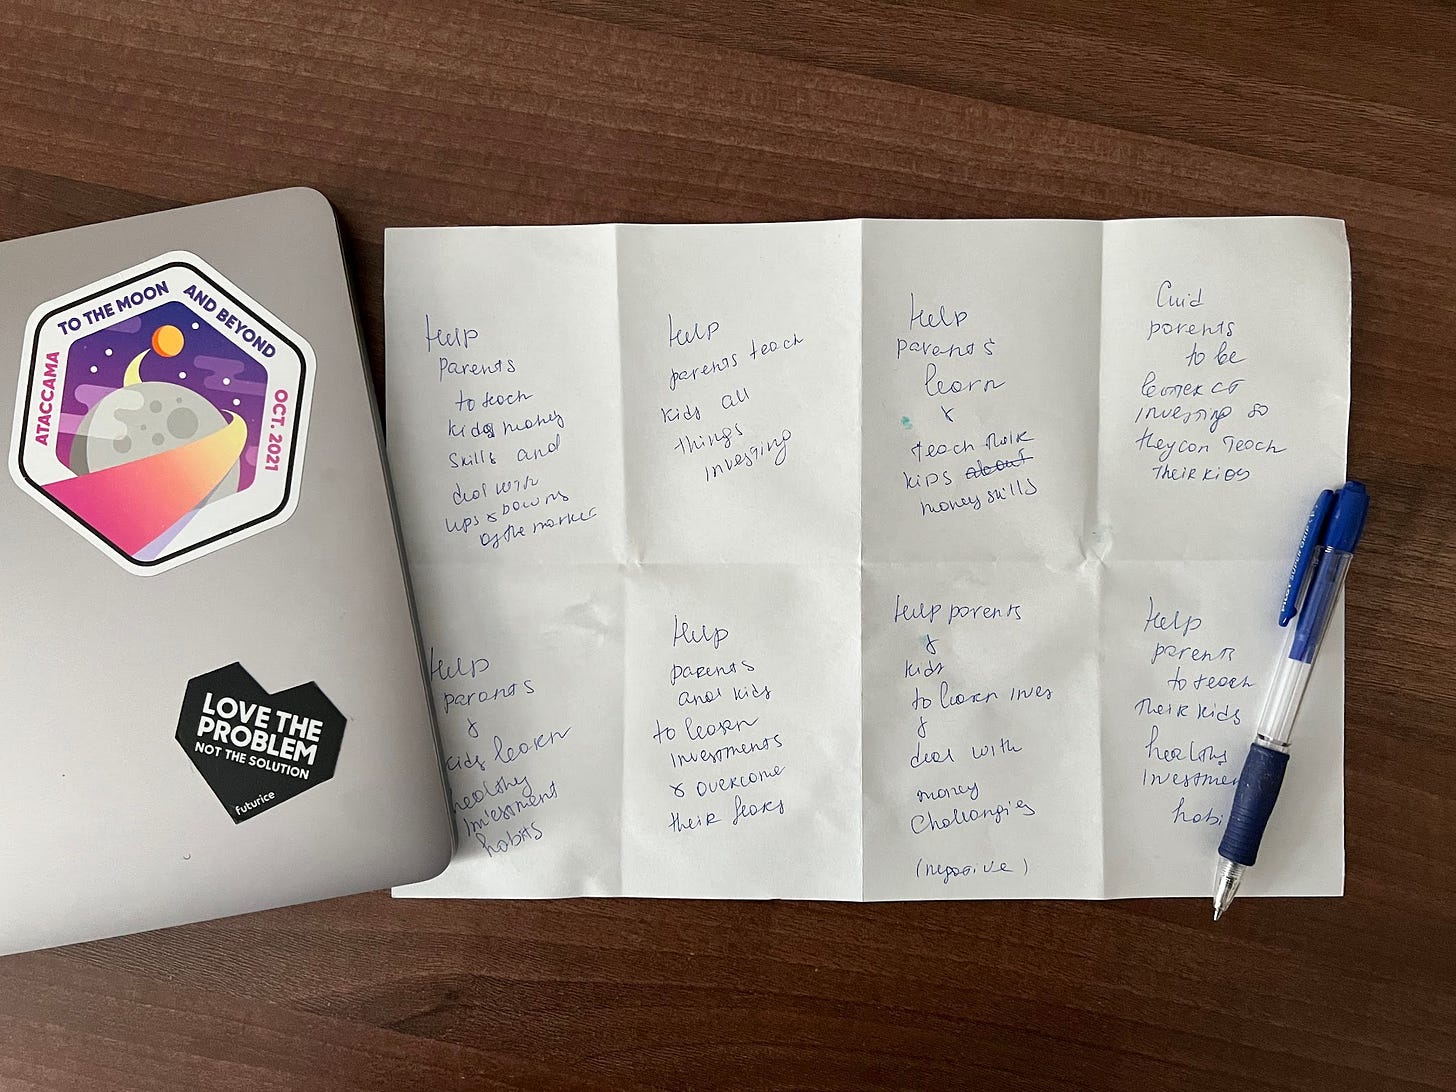 ATACCAMA
TO THE MOON
AND BEYOND
OCT. 2021
LOVE THE
PROBLEM
NOT THE SOLUTION
futurice
Help
parents
to teach
kids money
skills and
deal with
ups & downs
of the market
Help
parents teach
kids all
things
investing
Help
parents
learn
&
teach their
kids about
money skills
parents
to be
better at
investing so
they can teach
their kids
Help
parents
&
kids learn
healthy
investment
habits
Help
parents
and kids
to learn
investments
& overcome
their fears
Help parents
&
kids
to learn inves
&
deal with
money
challengies
(negative)
Help
parents
to teach
their kids
healthy
investme
habi
PILOT SUPER GRIP